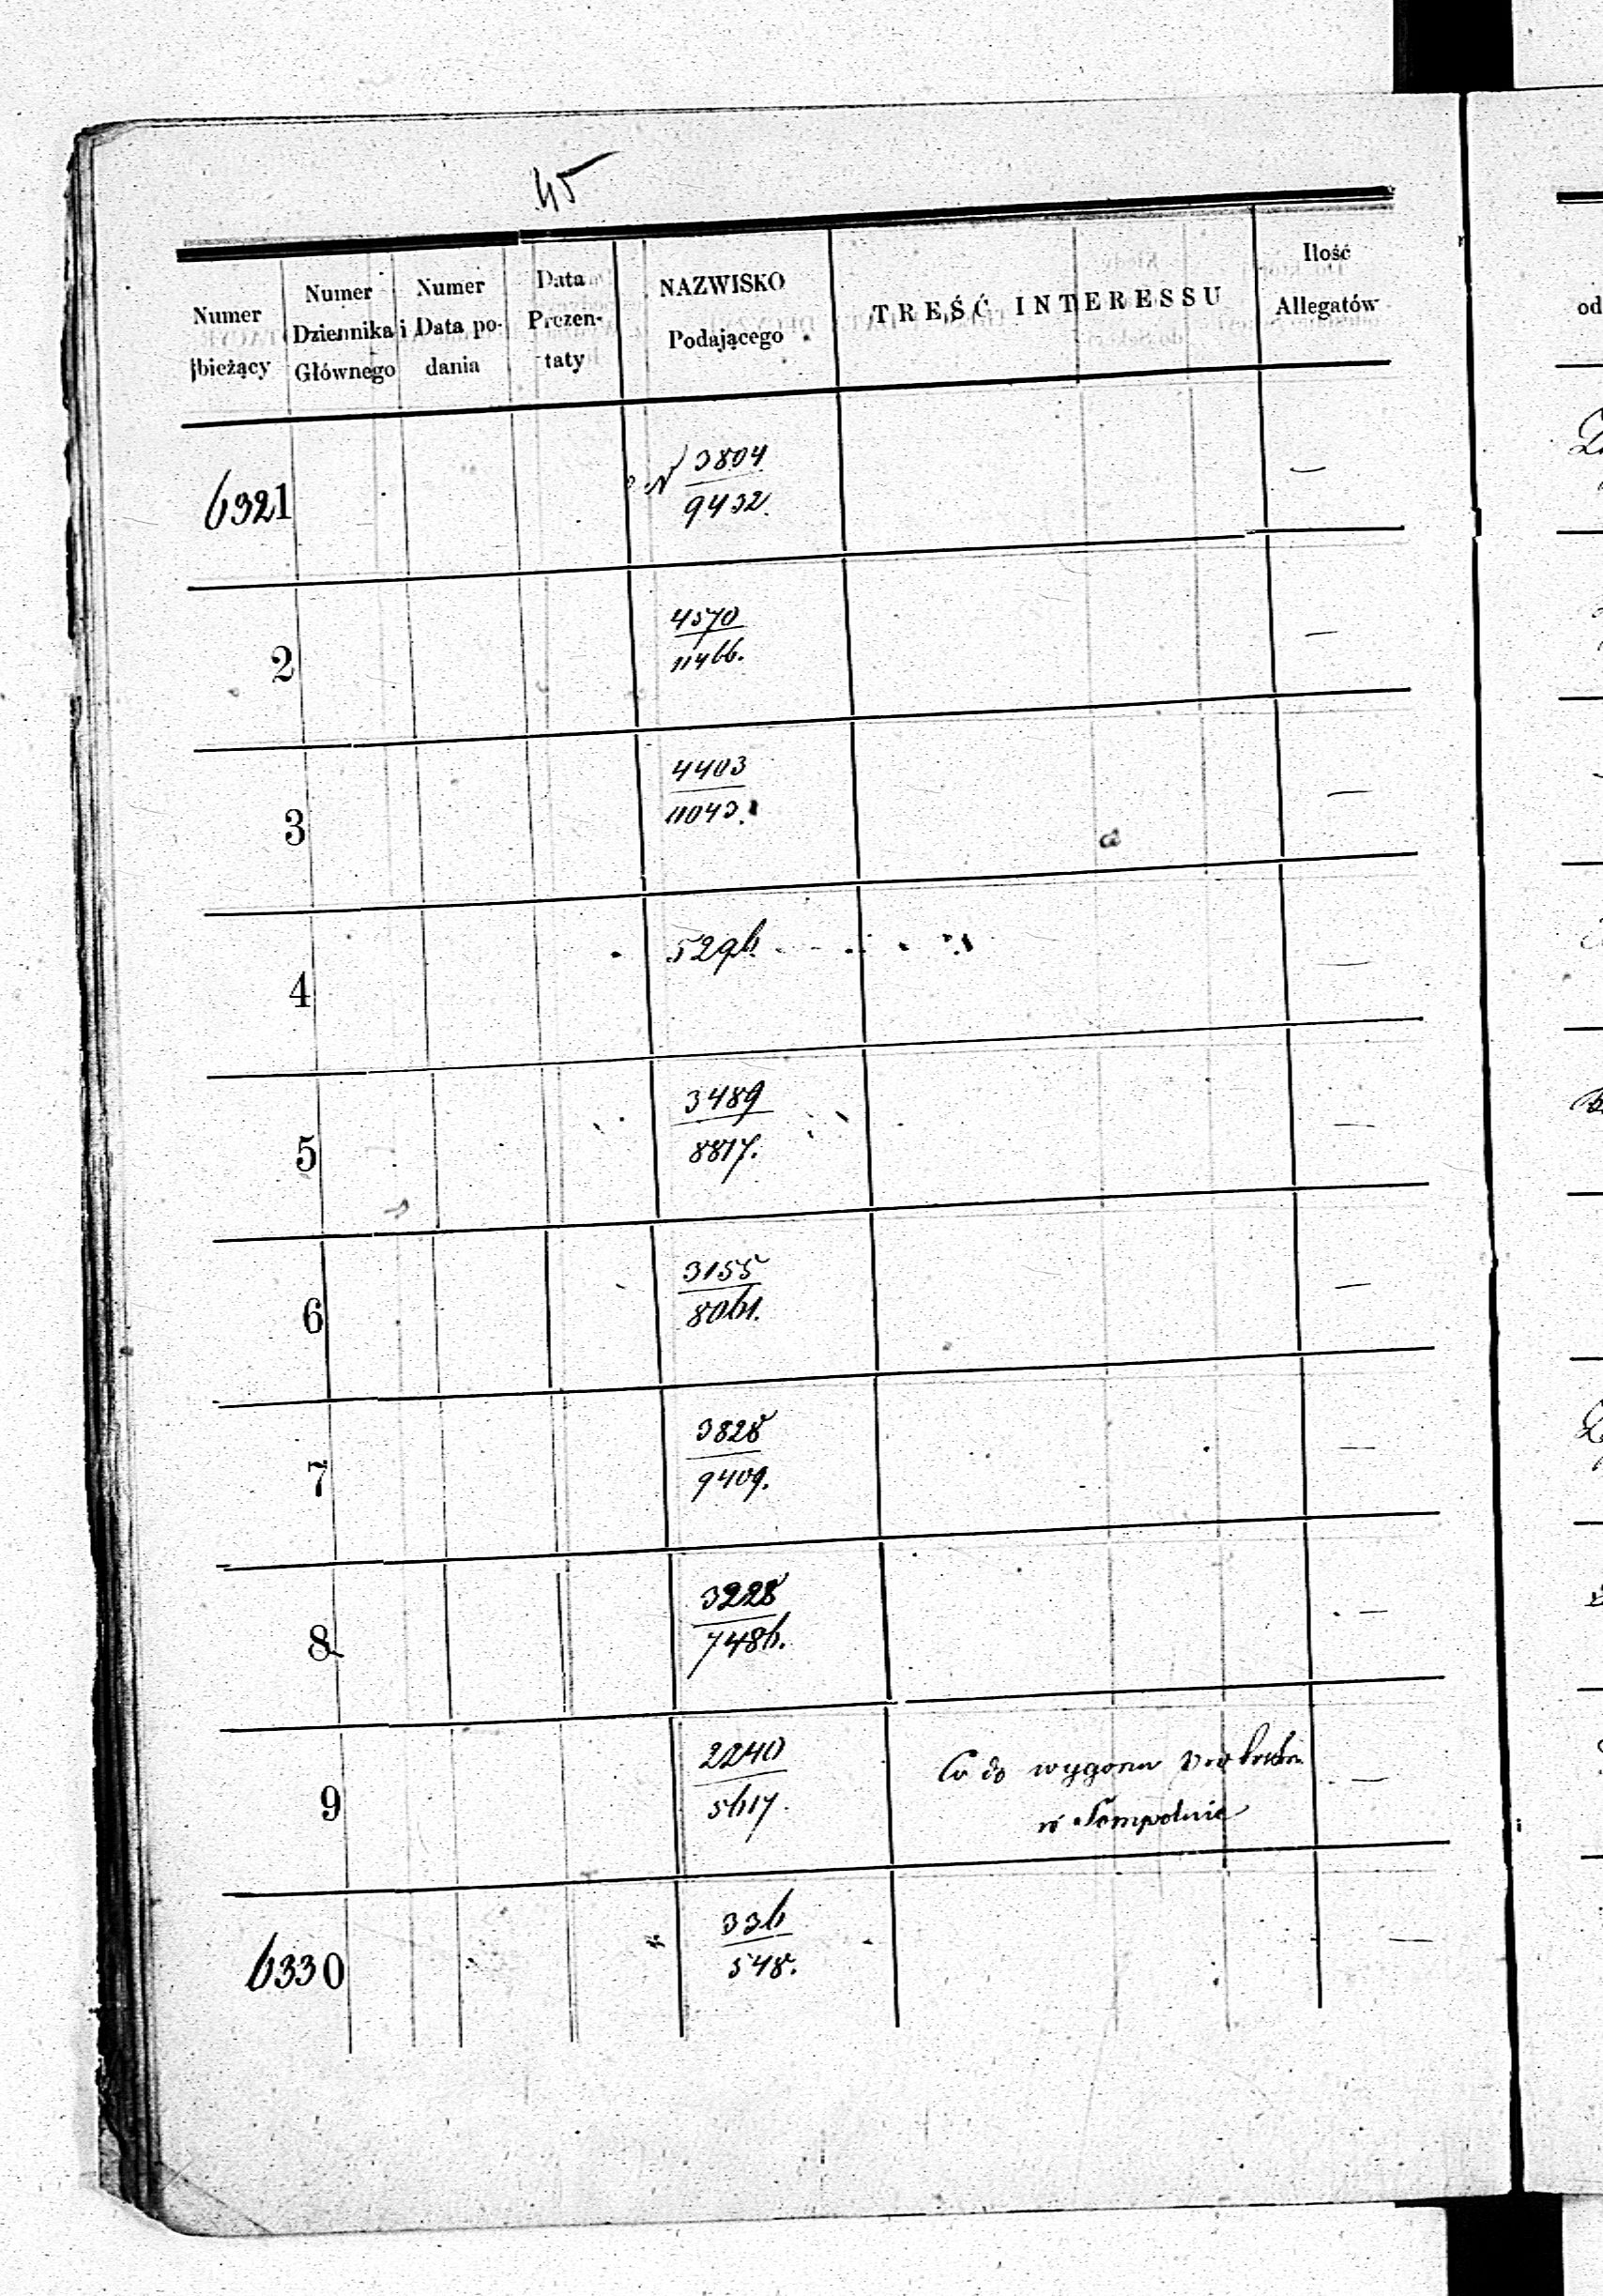 45
Numer bieżący
Numer Dziennika Głównego
Numer i Data podania
Data Prezentaty
NAZWISKO Podającego
TREŚĆ INTERESSU
Ilość Allegatów
6321 N 3804 —
9432.
2 4570 —
11466.
3 4403 —
11043.
4 5296. —
5 3489 —
8817.
6 3155 —
8061.
7 3828 —
9409.
8 3228 —
7486.
9 2240 Co do wygonu —
5617. w Sompolnie
6330 336 —
548.